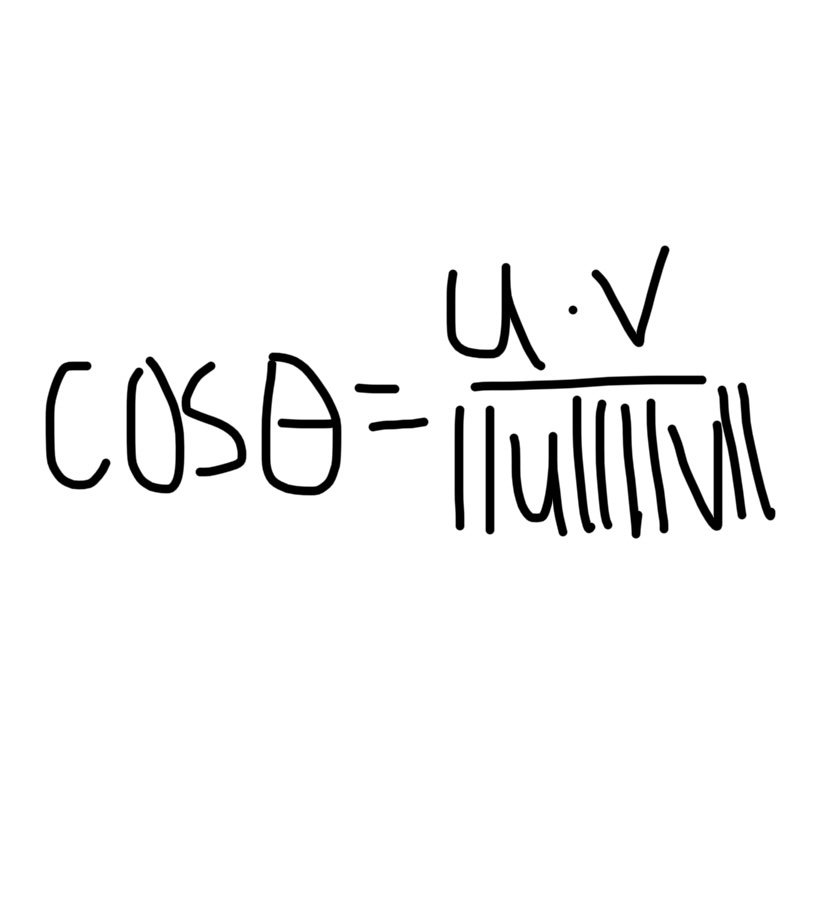 cosθ = u · v / ||u|| ||v||